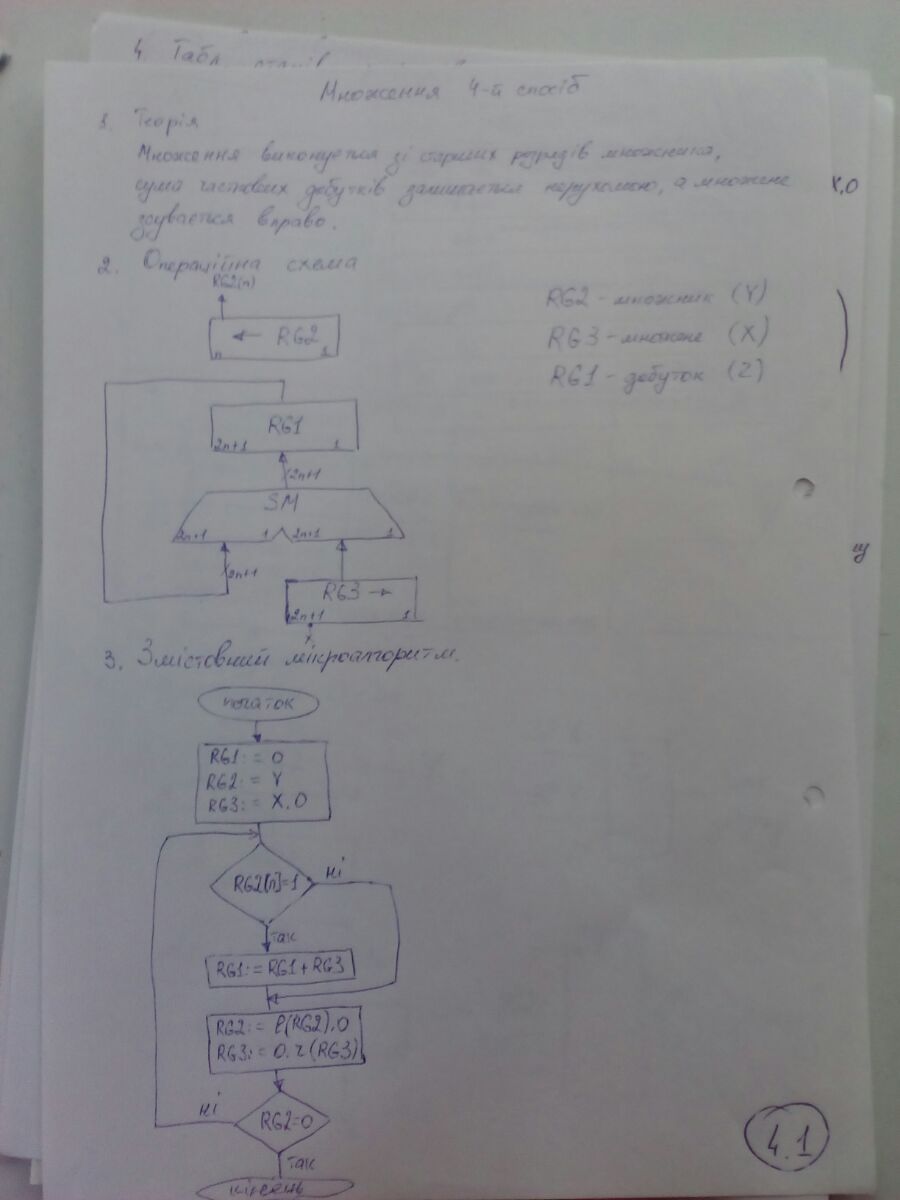 4. Табл
Множення 4-й спосіб
1. Теорія
Множення виконується зі старших розрядів множника,
сума часткових добутків залишається нерухомою, а множене
зсувається вправо.
X.0
2. Операційна схема
RG2(n)
← RG2
n 1
RG2 - множник (Y)
RG3 - множене (X)
RG1 - добуток (Z)
RG1
2n+1 1
2n+1
SM
2n+1 1 2n+1 1
2n+1
RG3 →
2n+1 1
3. Змістовний мікроалгоритм.
початок
RG1:= 0
RG2:= Y
RG3:= X.0
RG2[n]=1
ні
так
RG1:=RG1+RG3
RG2:= l(RG2).0
RG3:= 0.r(RG3)
ні
RG2=0
так
кінець
4.1